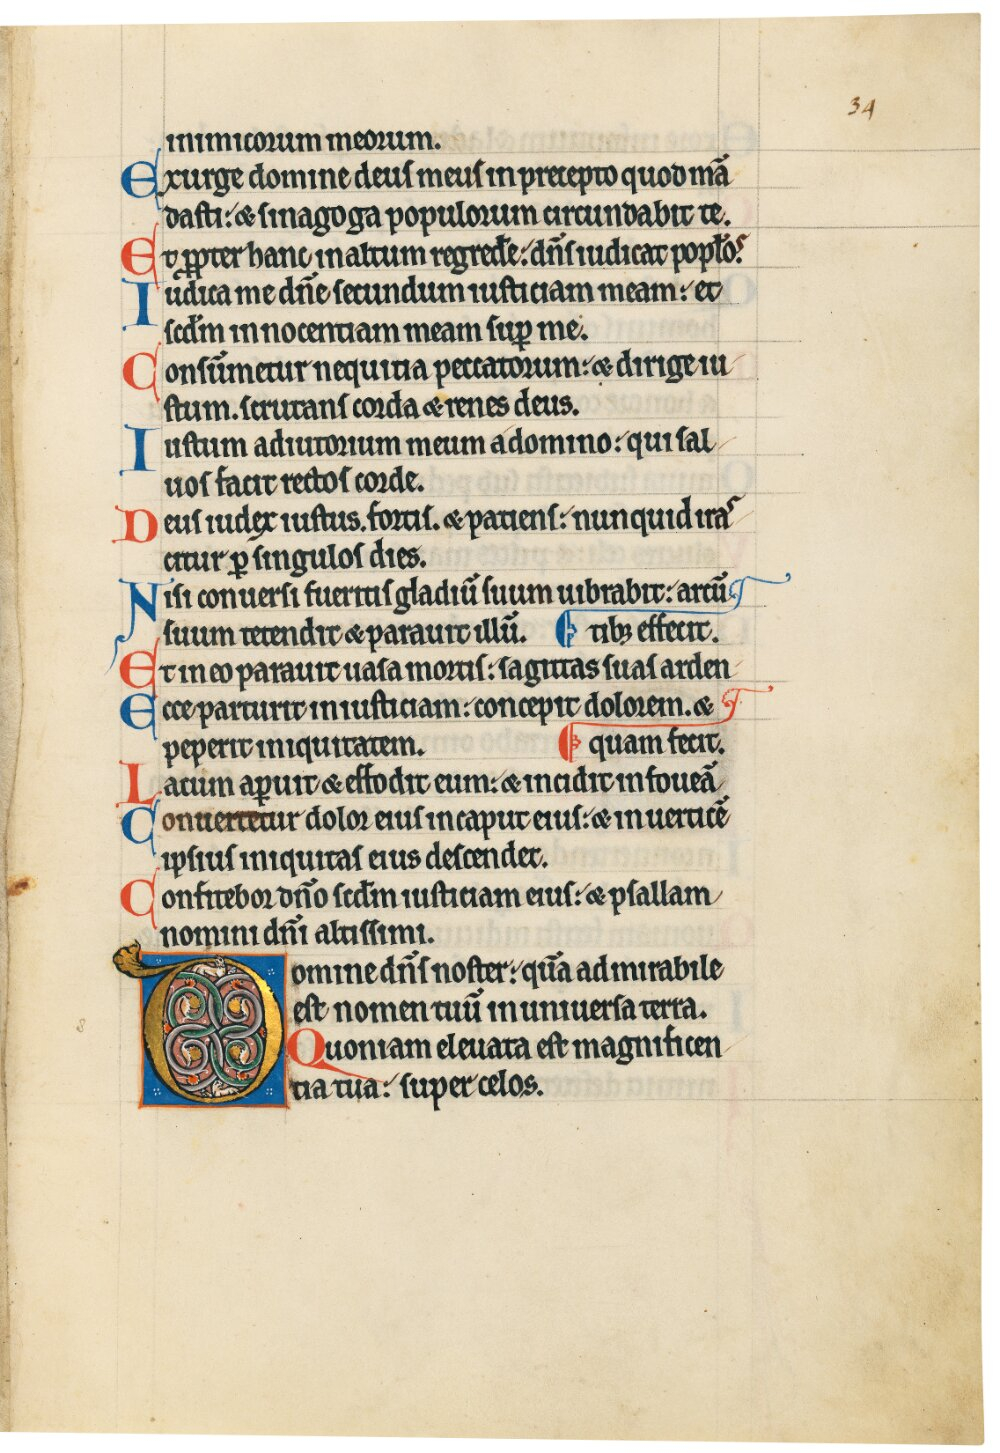 34
inimicorum meorum.
Exurge domine deus meus in precepto quod mā
dasti: & sinagoga populorum circundabit te.
Et ꝓpter hanc in altum regredere: dn̄s iudicat poplōꝝ
Iudica me dn̄e secundum iusticiam meam: et
scdm̄ innocentiam meam suꝑ me.
Consūmetur nequitia peccatorum: & dirige iu
stum. scrutans corda & renes deus.
Iustum adiutorium meum a domino: qui sal
uos facit rectos corde.
Deus iudex iustus. fortis. & patiens: nunquid iras
citur ꝑ singulos dies.
Nisi conuersi fueritis gladiū suum uibrabit: arcū
suum tetendit & parauit illū. tibꝫ effecit.
Et in eo parauit uasa mortis: sagittas suas arden
Ecce parturit iniusticiam: concepit dolorem. &
peperit iniquitatem. quam fecit.
Lacum aꝑuit & effodit eum: & incidit in foueā
Conuertetur dolor eius in caput eius: & in uerticē
ipsius iniquitas eius descendet.
Confitebor dn̄o scdm̄ iusticiam eius: & psallam
nomini dn̄i altissimi.
Domine dn̄s noster: qm̄ admirabile
est nomen tuū in uniuersa terra.
8
Quoniam eleuata est magnificen
tia tua: super celos.